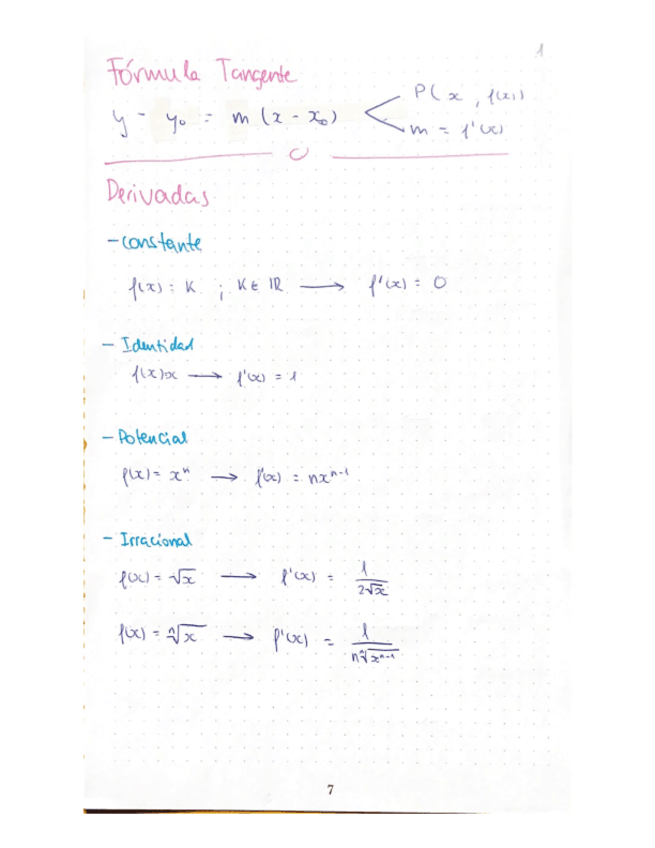 1
Fórmula Tangente
y - y₀ = m (x - x₀) < P(x, f(x))
m = f'(x)
Derivadas
- constante
f(x) = K ; K ∈ ℝ → f'(x) = 0
- Identidad
f(x)=x → f'(x) = 1
- Potencial
f(x) = xⁿ → f'(x) = nxⁿ⁻¹
- Irracional
f(x) = √x → f'(x) = 1/(2√x)
f(x) = ⁿ√x → f'(x) = 1/(n ⁿ√(xⁿ⁻¹))
7